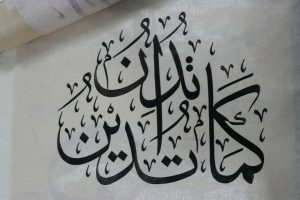 كَمَا تَدِيْنُ
تُدَانُ